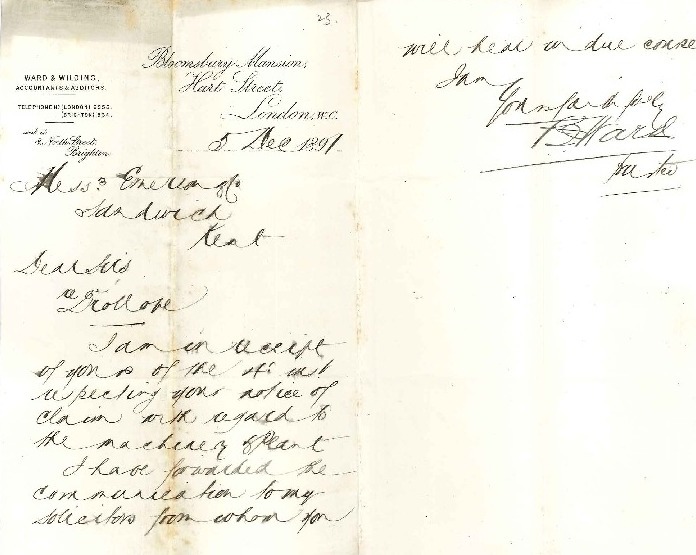 23.
WARD & WILDING,
ACCOUNTANTS & AUDITORS.
TELEPHONE NOS (LONDON)
(BRIGHTON)
and at
North Street,
Brighton
Bloomsbury Mansion,
Hart Street,
London, W.C.
5 Dec 1891
Messrs Emerson & Co
Sandwich
Kent
Dear Sirs
re Trollope
I am in receipt
of yours of the 4th inst
respecting your notice of
claim with regard to
the machinery & Plant
I have forwarded the
communication to my
solicitors from whom you
will hear in due course
I am
Yours faithfully
Ward
Trustee